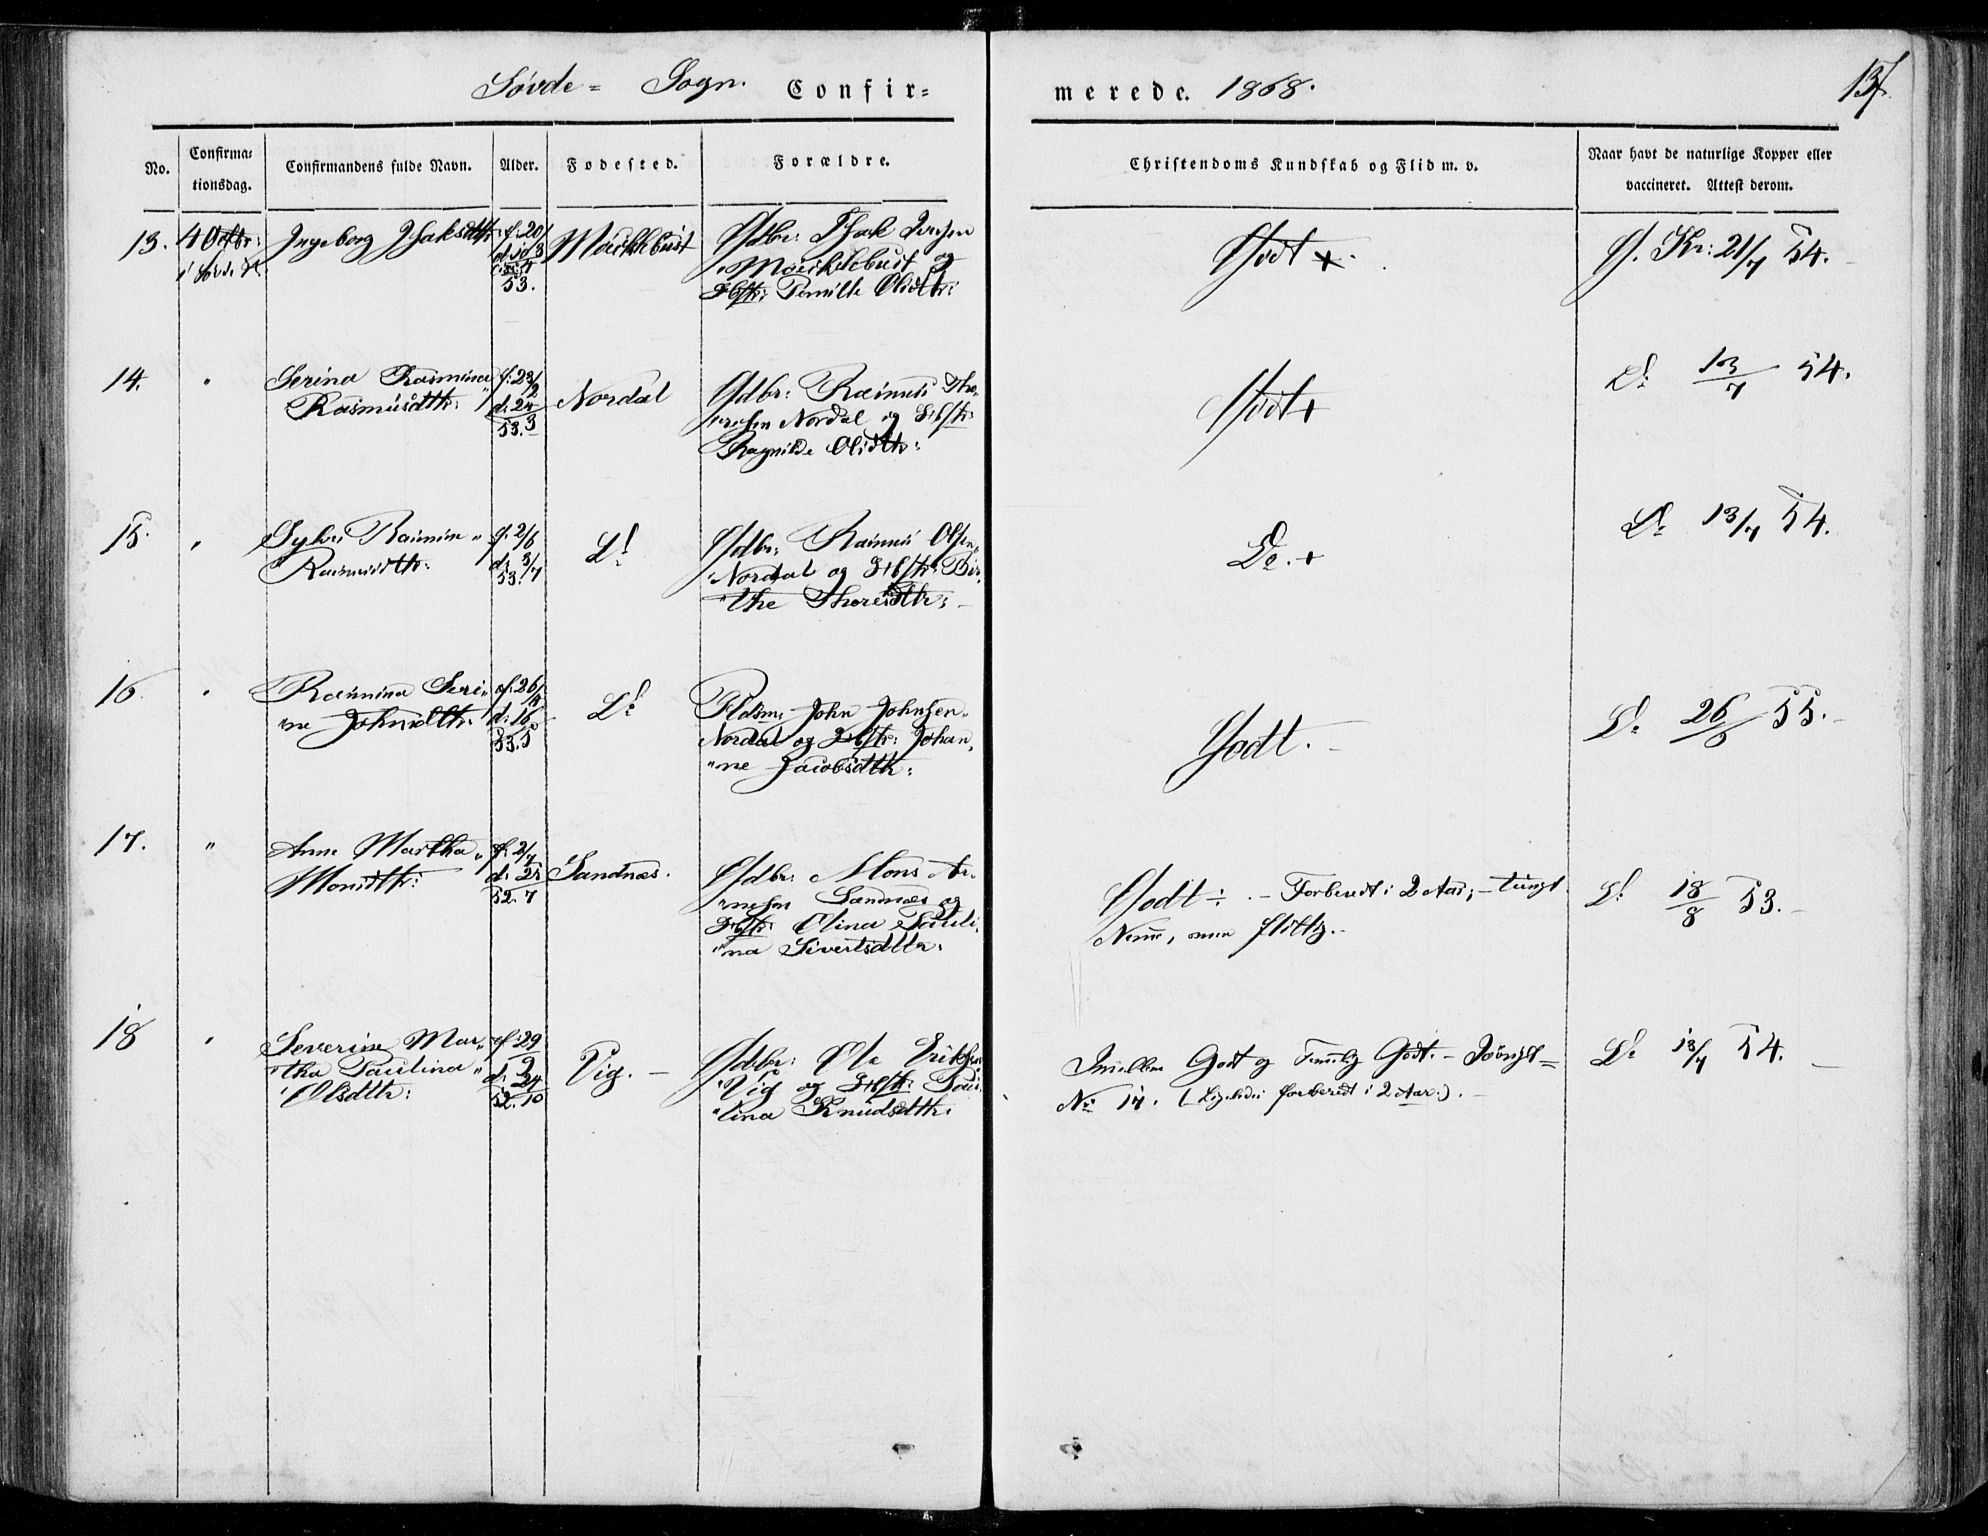 Søvde= Sogn. Confir=
merede. 1868.
137.
No.
Confirma=
tionsdag.
Confirmandens fulde Navn.
Alder.
Fødested.
Forældre.
Christendoms Kundskab og Flid m. v.
Naar havt de naturlige Kopper eller
vaccineret. Attest derom.
13. 4 Octbr:
i Søvde K.
Ingeborg Isaksdtr:
f: 20/
53.
Mørkhbust
Gdbr: Isak
Mørkhbust og
Hstr: Pernille Olsdtr:
Godt +.
G. Kr: 21/7 54.
14. "
Serina Rasmina
Rasmusdtr:
f: 23/2
d: 24/3
53.
Nordal
Gdbr: Rasmus Tho-
resen Nordal og Hstr:
Ragnilde Olsdtr:
Godt +
Do 13/7 54.
15. "
Sylvi Rasmine
Rasmusdtr:
f: 2/6
d: 3/7
53.
Do
Gdbr: Rasmus Olsen
Nordal og Hstr: Bir-
"the Thoresdtr:
Do. +
Do 13/7 54.
16. "
Rasmina Seri-
ne Johnsdtr:
f: 26/
d: 16
53. 5
Do
Pldsm: John Johnsen
Nordal og Hstr: Johan-
"ne Jacobsdtr:
Godt.
Do 26/6 55.
17. "
Anne Martha
Monsdtr:
f: 2/7
d: 25
52. 7
Sandnæs.
Gdbr: Mons Ar-
nesen Sandnæs og
Hstr: Olina Pauli-
"na Sivertsdtr:
Godt ÷. - Forberedt i 2 Aar; - tungt
Nemme, men flittig.
Do 18/8 53.
18 "
Severine Mar-
tha Paulina
Olsdtr:
f: 29
9
d: 24
52. 10
Vig.
Gdbr: Ole Eriksen
Vig og Hstr: Pau-
"lina Knudsdtr:
Imellem Godt og Temmelig Godt. - Iøvrigt =
No 17. (Ligeledes forberedt i 2 Aar.).
Do 13/7 54.